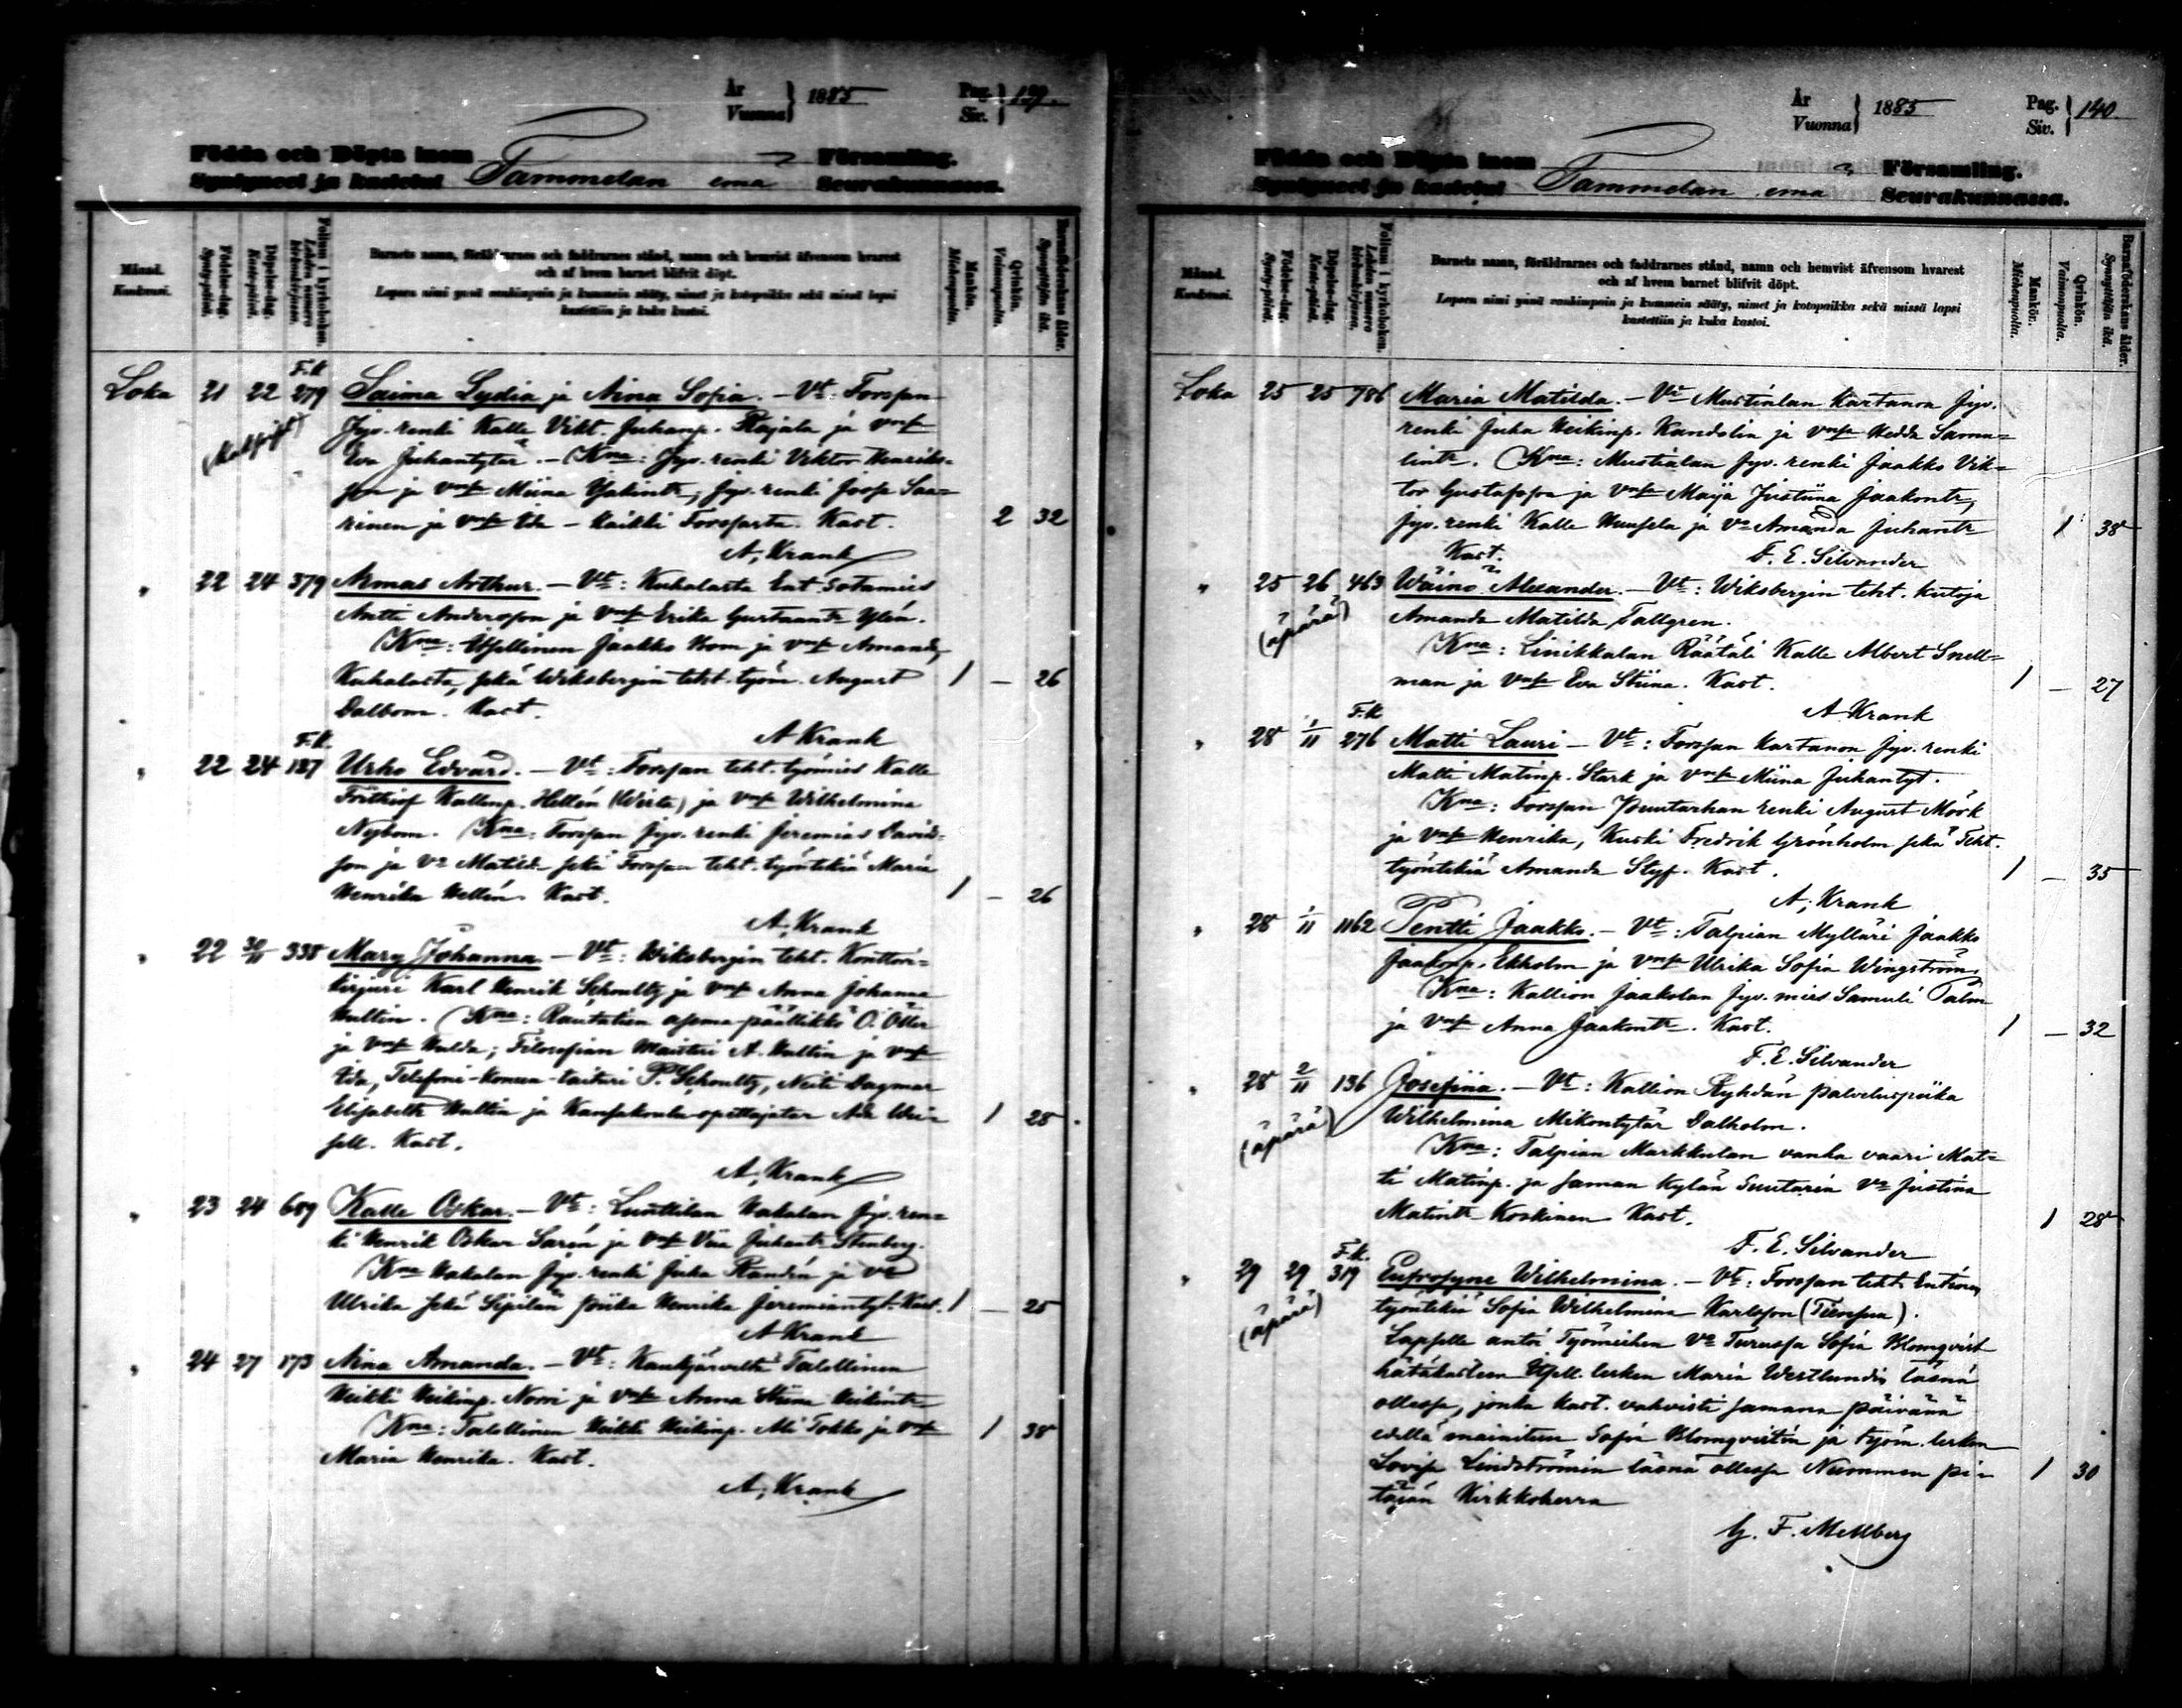 År
Vuonna } 1885 Pag. Siv. } 139.
Födda och Döpta inom Församling.
Syntyneet ja kastetut Tammelan emä Seurakunnassa.
Månad. Kuukausi.
Födelse-dag. Synty-päivä.
Döpelse-dag. Kaste-päivä.
Folium i kyrkoboken. Lehden numero kirkonkirjassa.
Barnets namn, föräldrarnes och faddrarnes stånd, namn och hemvist äfvensom hvarest
och af hvem barnet blifvit döpt.
Lapsen nimi ynnä vanhimpain ja kummein sääty, nimet ja kotopaikka sekä missä lapsi
kastettiin ja kuka kastoi.
Mankön. Miehenpuolta.
Qvinkön. Vaimonpuolta.
Barnaföderskans ålder. Synnyttäjän ikä.
F.k.
Loka 21 22 279 Saima Lydia ja Aina Sofia. – Vt: Forssan
Jyv. renki Kalle Vikt. Juhanp. Rajala ja vmsa
Eva Juhantytär. – Kna: Jyv. renki Viktor Henriks-
son ja vmsa Miina; Jyv. renki Joos. Saa-
rinen ja vmsa Ida – Kaikki Forssasta. Kast. 2 32
A. Krank
" 22 24 379 Armas Arthur. – Vt: Kuhalasta Ent. Sotamies
Antti Andersson ja vmsa Erika Gustaantr Ylén.
Kna: Itsellinen Jaakko Krom ja vmsa Amanda,
Kuhalasta, sekä Wiksbergin teht. työm. August 1 – 26
Dalbom. Kast.
A Krank
F.k.
" 22 24 137 Urho Edvard. – Vt: Forssan teht. työmies Kalle
Frithiof Kallenp. Hellén (Wirta) ja vmsa Wilhelmina
Nybom. Kna: Forssan Jyv. renki Jeremias David-
son ja Vo Matild. sekä Forssan teht. työntekiä Maria
Henrika Hellén. Kast. 1 – 26
A. Krank
" 22 30/11 338 Mary Johanna – Vt: Wiksbergin teht. Konttori-
kirjuri Karl Henrik Schoultz ja vmsa Anna Johanna
Hultin. Kna: Rautatien asema-päällikkö O.
ja vmsa Hulda; Filosofian Maisteri A. Hultin ja vmsa
Ida, Telefoni-konen-taituri P. Schoultz, Neiti Dagmar
Elisabeth Hultin ja Kansakoulu-opettajatar Ada 1 28
Kast.
A. Krank
" 23 24 609 Kalle Oskar. – Vt: Lunttilan Hakalan Jyv. ren-
ki Henrik Oskar Sarén ja vmsa Juhantr Stenberg.
Kna Hakalan Jyv. renki Juha Randén ja vo
Ulrika sekä Sipilän piika Henrika Jeremiantyt. Kast. 1 – 25
A Krank
" 24 27 173 Aina Amanda. – Vt: Kaukjärveltä Talollinen
Heikki Heikinp. ja vmsa Anna Stiina Heikintr
Kna: Talollinen Heikki Heikinp. Ali Tokko ja vmsa 1 38
Maria Henrika. Kast.
A. Krank
År
Vuonna } 1885 Pag. Siv. } 140.
Födda och Döpta inom Församling.
Syntyneet ja kastetut Tammelan emä Seurakunnassa.
Månad. Kuukausi.
Födelse-dag. Synty-päivä.
Döpelse-dag. Kaste-päivä.
Folium i kyrkoboken. Lehden numero kirkonkirjassa.
Barnets namn, föräldrarnes och faddrarnes stånd, namn och hemvist äfvensom hvarest
och af hvem barnet blifvit döpt.
Lapsen nimi ynnä vanhimpain ja kummein sääty, nimet ja kotopaikka sekä missä lapsi
kastettiin ja kuka kastoi.
Mankön. Miehenpuolta.
Qvinkön. Vaimonpuolta.
Barnaföderskans ålder. Synnyttäjän ikä.
Loka 25 25 786 Maria Matilda. – Vt Mustialan Kartanon Jyv.
renki Juha Heikinp. Kandolin ja vmsa Hedda Samu-
lintr. Kna: Mustialan Jyv. renki Jaakko Vik-
tor Gustafsson ja vmsa Maija Justiina Jaakontr,
Jyv. renki Kalle ja Vo Amanda Juhantr 1 38
Kast. F. E. Silvander
" 25 26 463 Wäinö Alexander. – Vt: Wiksbergin teht. kutoja
(äpärä) Amanda Matilda Tallgren.
Kna: Linikkalan Räätäli Kalle Albert Snell-
man ja vmsa Eva Stiina. Kast. 1 – 27
A Krank
F.k
" 28 1/11 276 Matti Lauri – Vt: Forssan Kartanon Jyv. renki
Matti Matinp. Stark ja vmsa Miina Juhantyt.
Kna: Forssan Puutarhan renki August Mörk
ja vmsa Henrika, Kuski Fredrik Grönholm sekä Teht.
työntekiä Amanda Styf. Kast. 1 – 35
A. Krank
" 28 1/11 1162 Pentti Jaakko. – Vt: Talpian Mylläri Jaakko
Jaakonp. Ekholm ja vmsa Ulrika Sofia Wingström.
Kna: Kallion Jaakolan Jyv. mies Samuli Palm
ja vmsa Anna Jaakontr. Kast. 1 – 32
F. E. Silvander
" 28 2/11 136 Josefina. – Vt: Kallion Ryhdän palveluspiika
(äpärä) Wilhelmina Mikontytär Dalholm.
Kna: Talpian Markkulan vanha vaari Mat-
ti Matinp. ja saman kylän Suutarin Vo Justina
Matintr Koskinen. Kast. 1 28
F. E. Silvander
F.k.
" 29 29 319 Eufrosyne Wilhelmina. – Vt: Forssan teht. Entinen
(äpärä) työntekiä Sofia Wilhelmina Karlsson (Tiensuu).
Lapselle antoi Työmiehen Vo Turussa Sofia Blomqvist
hätäkasteen Itsell. lesken Maria Westlundin läsnä
ollessa, jonka kast. vahvisti samana päivänä
edellä mainitun Sofia Blomqvistin ja työm. lesken
Lovisa Lindströmin läsnä ollessa Nummen pi- 1 30
täjän Kirkkoherra
G. F. Mellberg